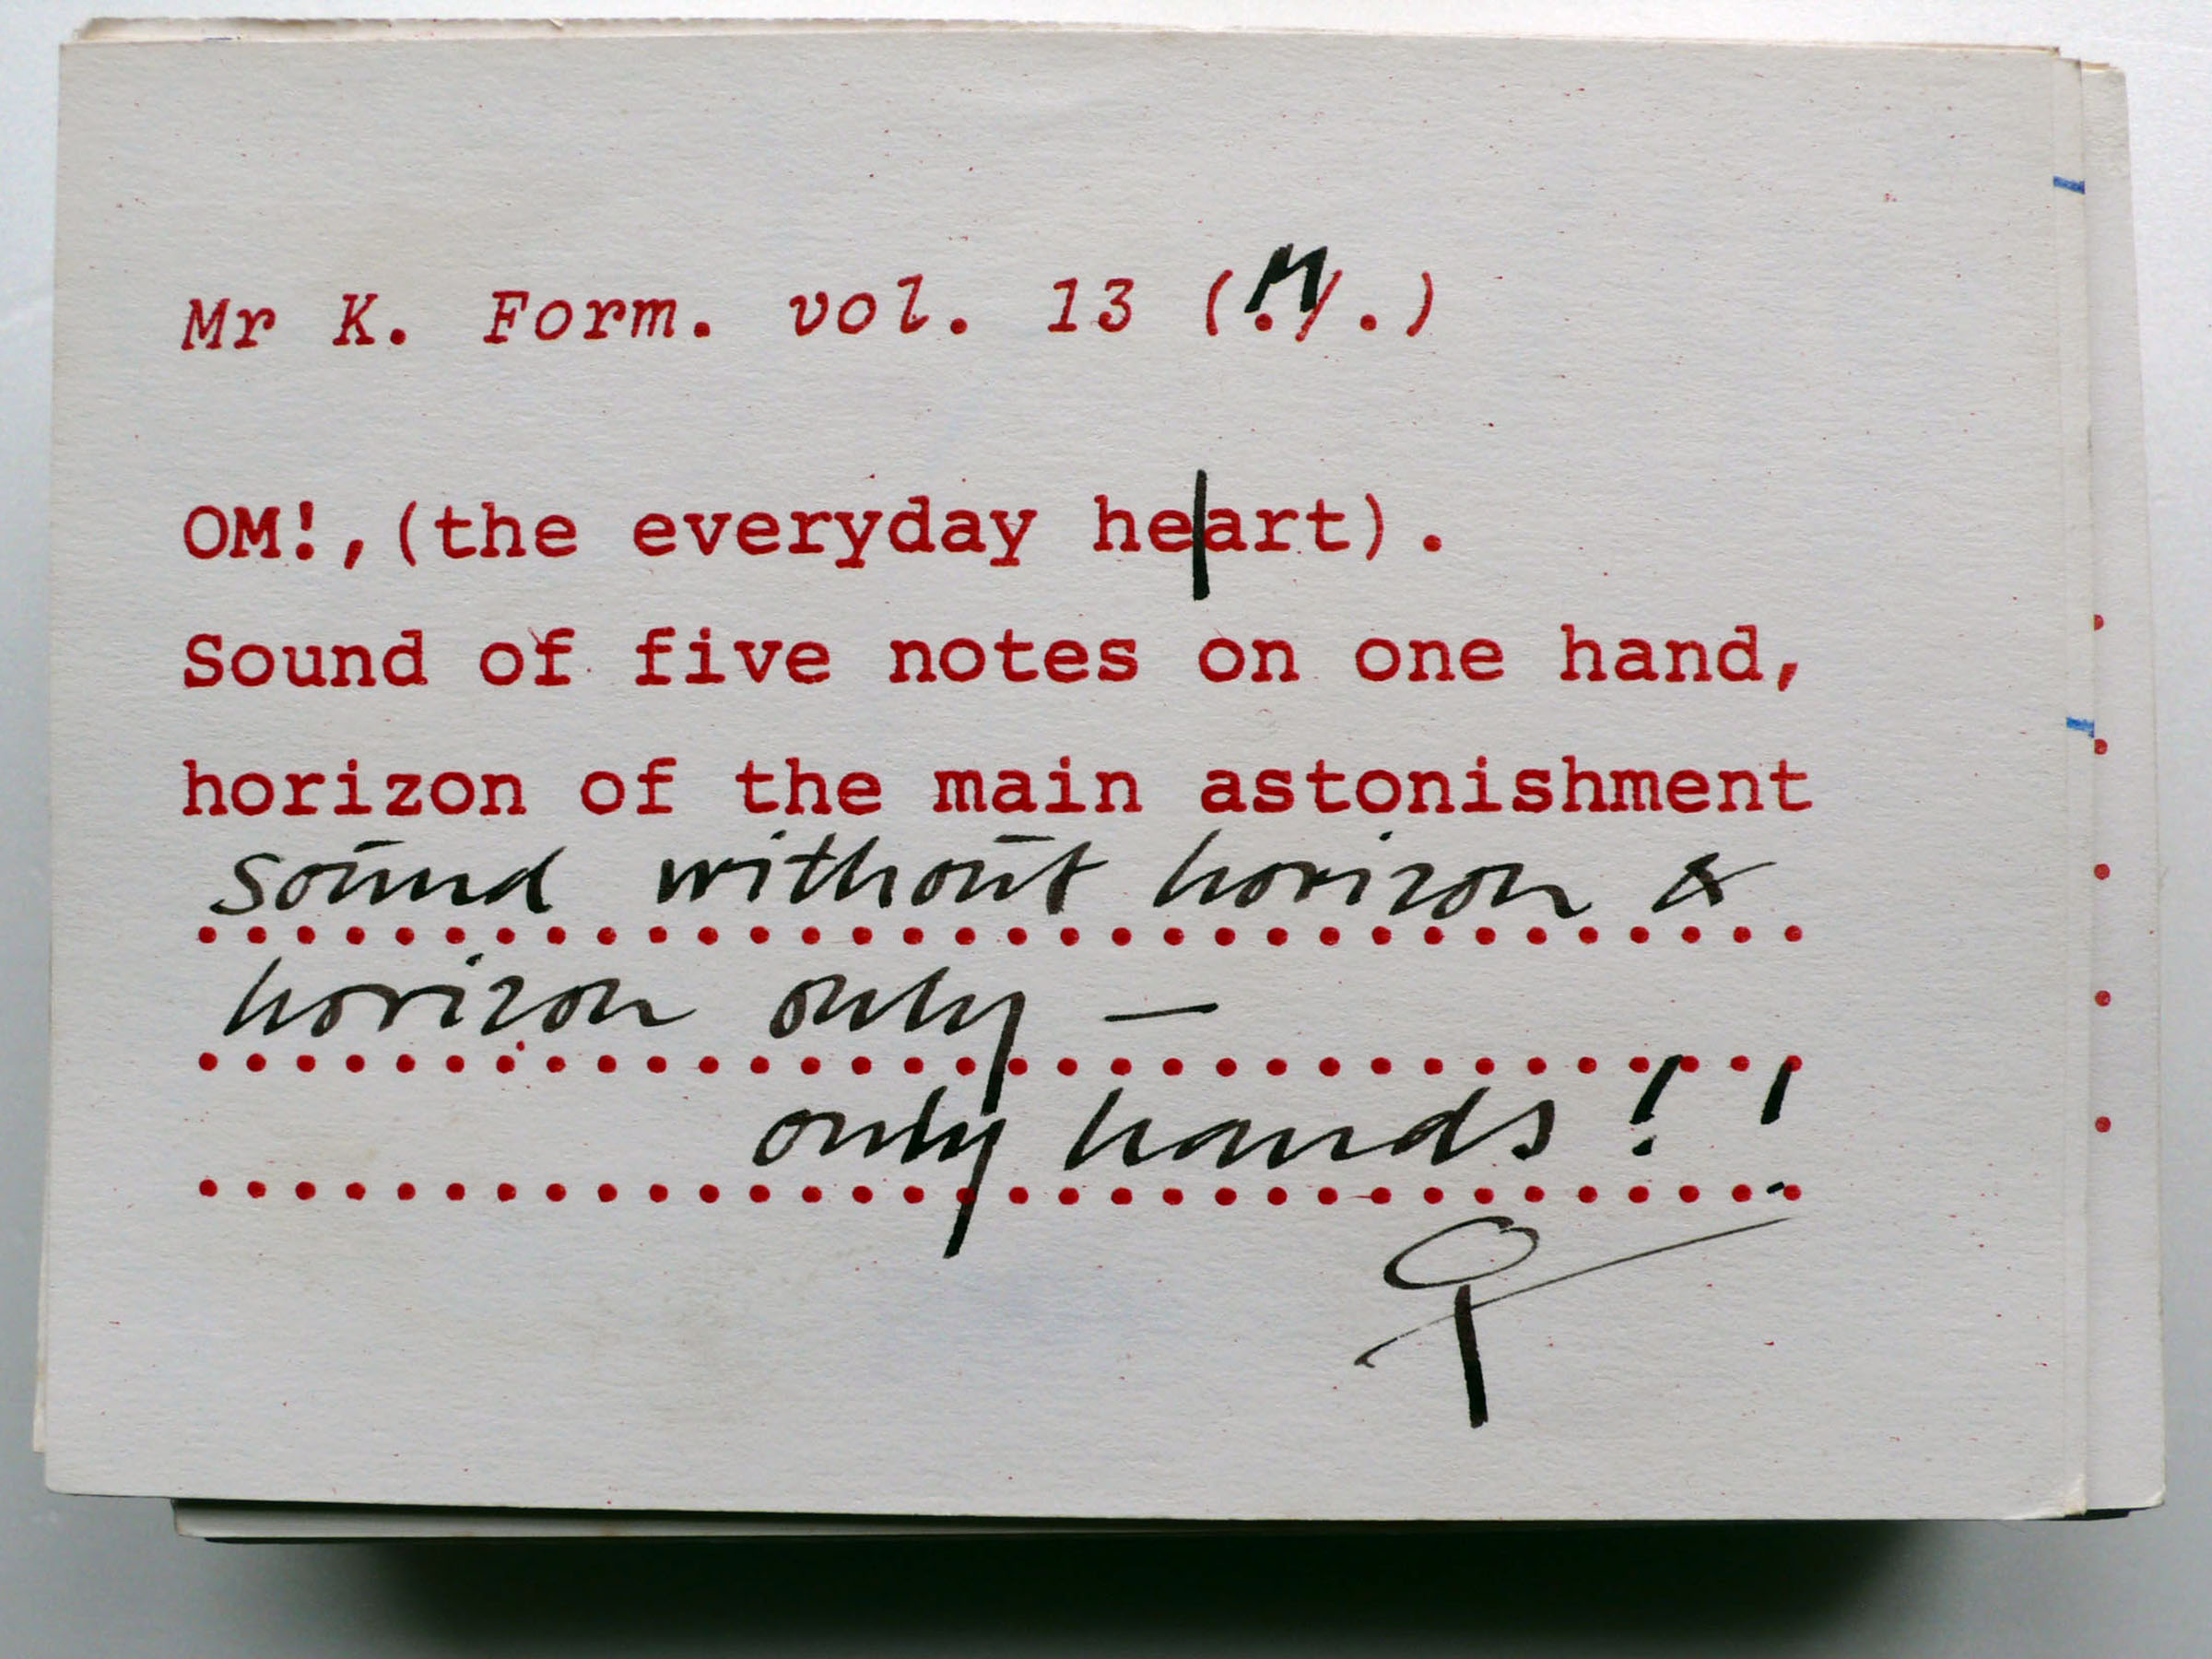 Mr K. Form. vol. 13 (./.)
OM!,(the everyday he|art).
Sound of five notes on one hand,
horizon of the main astonishment
sound without horizon &
horizon only —
only hands! !